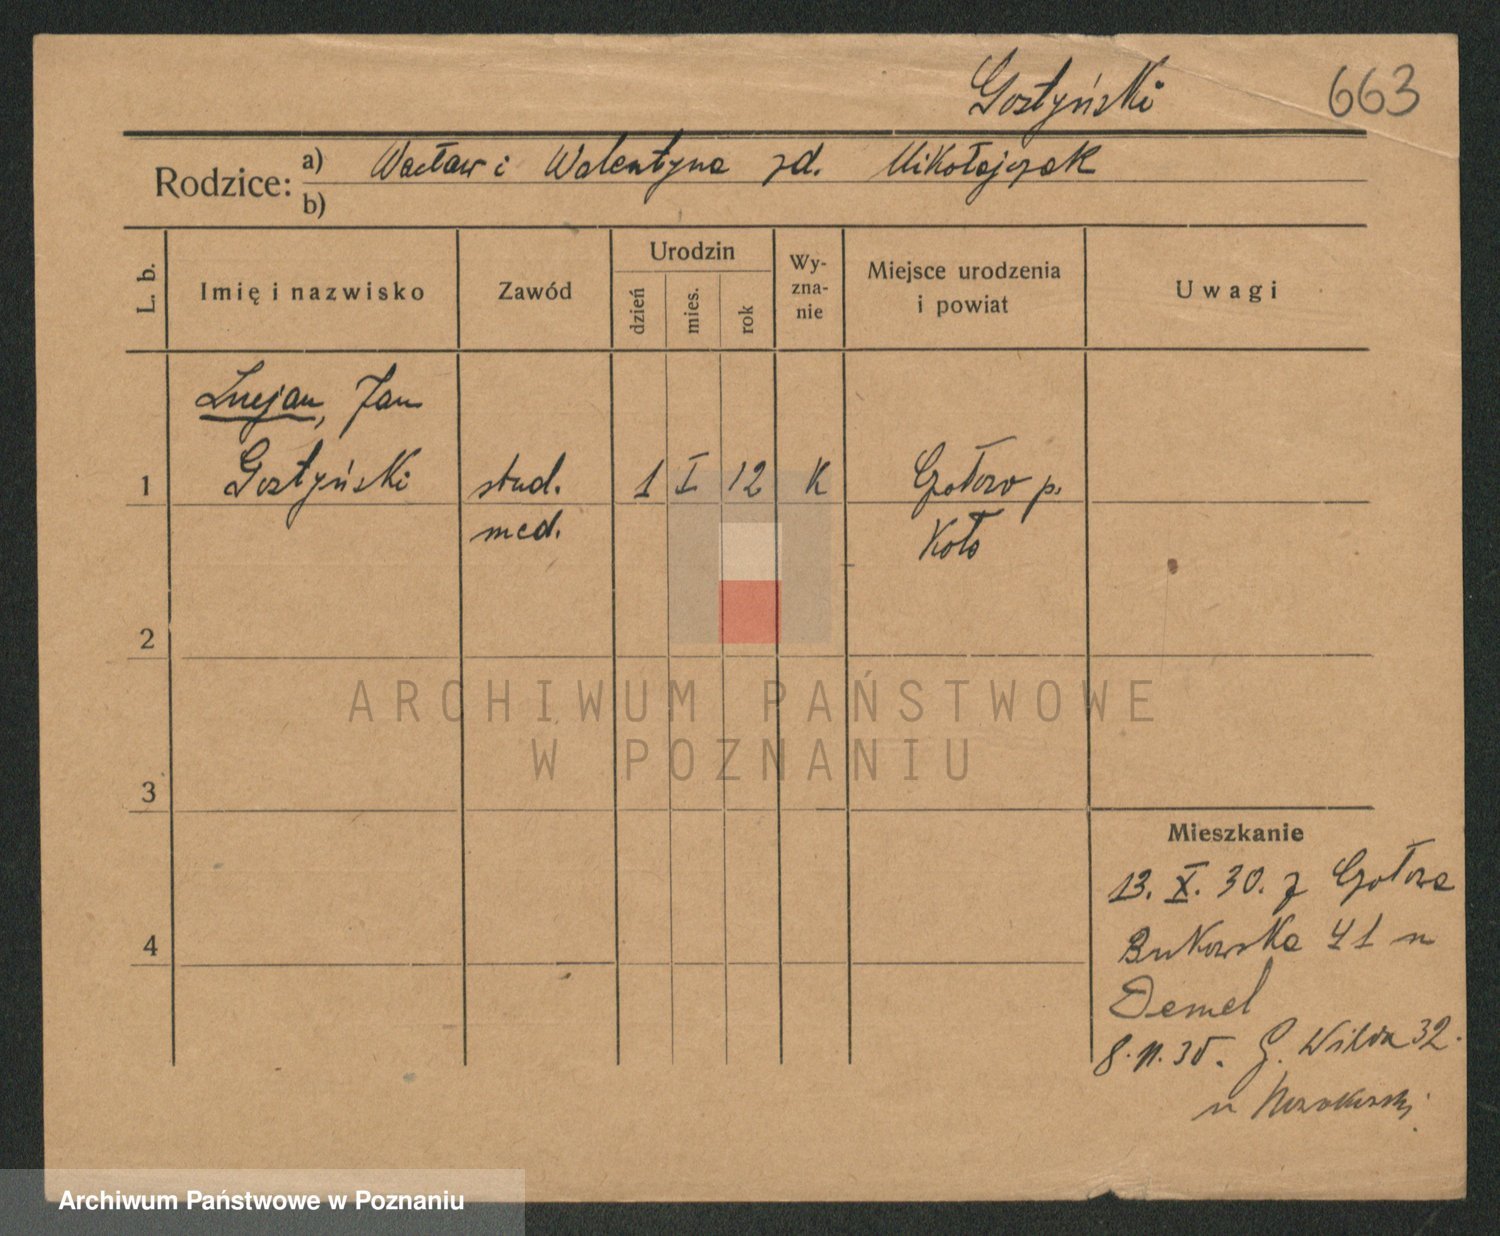 Gostyński 663
Rodzice: a) Wacław i Walentyna zd. Mikołajczak
b)
L. b. Imię i nazwisko Zawód Urodzin dzień mies. rok Wy-zna-nie Miejsce urodzenia i powiat Uwagi
Lucjan, Jan
1 Gostyński stud. 1 I 12 K p.
med. Koło
2
ARCHIWUM PAŃSTWOWE
W POZNANIU
3
Mieszkanie
13. X. 30. z
4 Bukowska 41 u
Demel
G. Wilda 32.
u
Archiwum Państwowe w Poznaniu